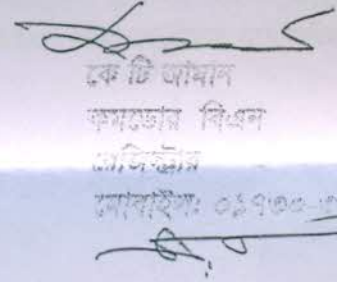 কে টি জামান
কমডোর বিএন
রেজিস্ট্রার
মোবাইলঃ ০১৭৩০-